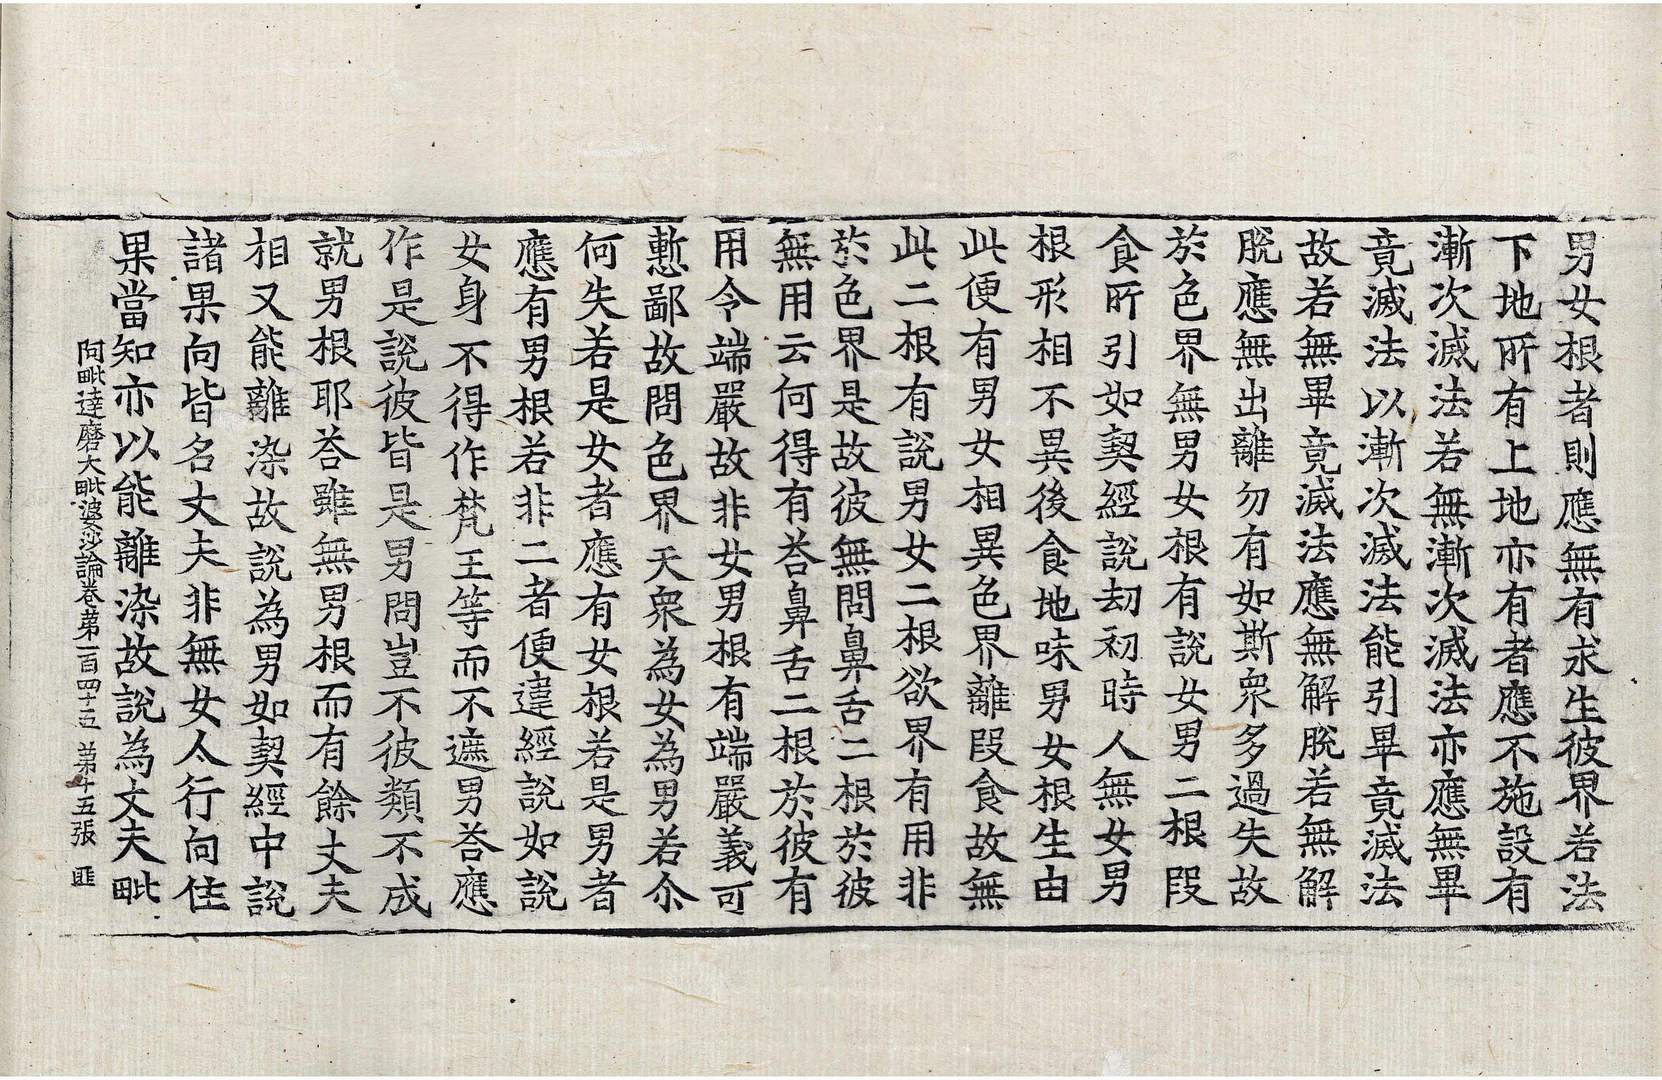 男女根者則應無有求生彼界若法
下地所有上地亦有者應不施設有
漸次滅法若無漸次滅法亦應無畢
竟滅法以漸次滅法能引畢竟滅法
故若無畢竟滅法應無解脫若無解
脫應無出離勿有如斯衆多過失故
於色界無男女根有說女男二根段
食所引如契經說劫初時人無女男
根形相不異後食地味男女根生由
此便有男女相異色界離段食故無
此二根有說男女二根欲界有用非
於色界是故彼無問鼻舌二根於彼
無用云何得有荅鼻舌二根於彼有
用令端嚴故非女男根有端嚴義可
慙鄙故問色界天衆為女為男若尒
何失若是女者應有女根若是男者
應有男根若非二者便違經說如說
女身不得作梵王等而不遮男荅應
作是說彼皆是男問豈不彼類不成
就男根耶荅雖無男根而有餘丈夫
相又能離染故說為男如契經中說
諸果向皆名丈夫非無女人行向住
果當知亦以能離染故說為丈夫毗
阿毗達磨大毗婆沙論卷第一百四十五 第十五張 匪